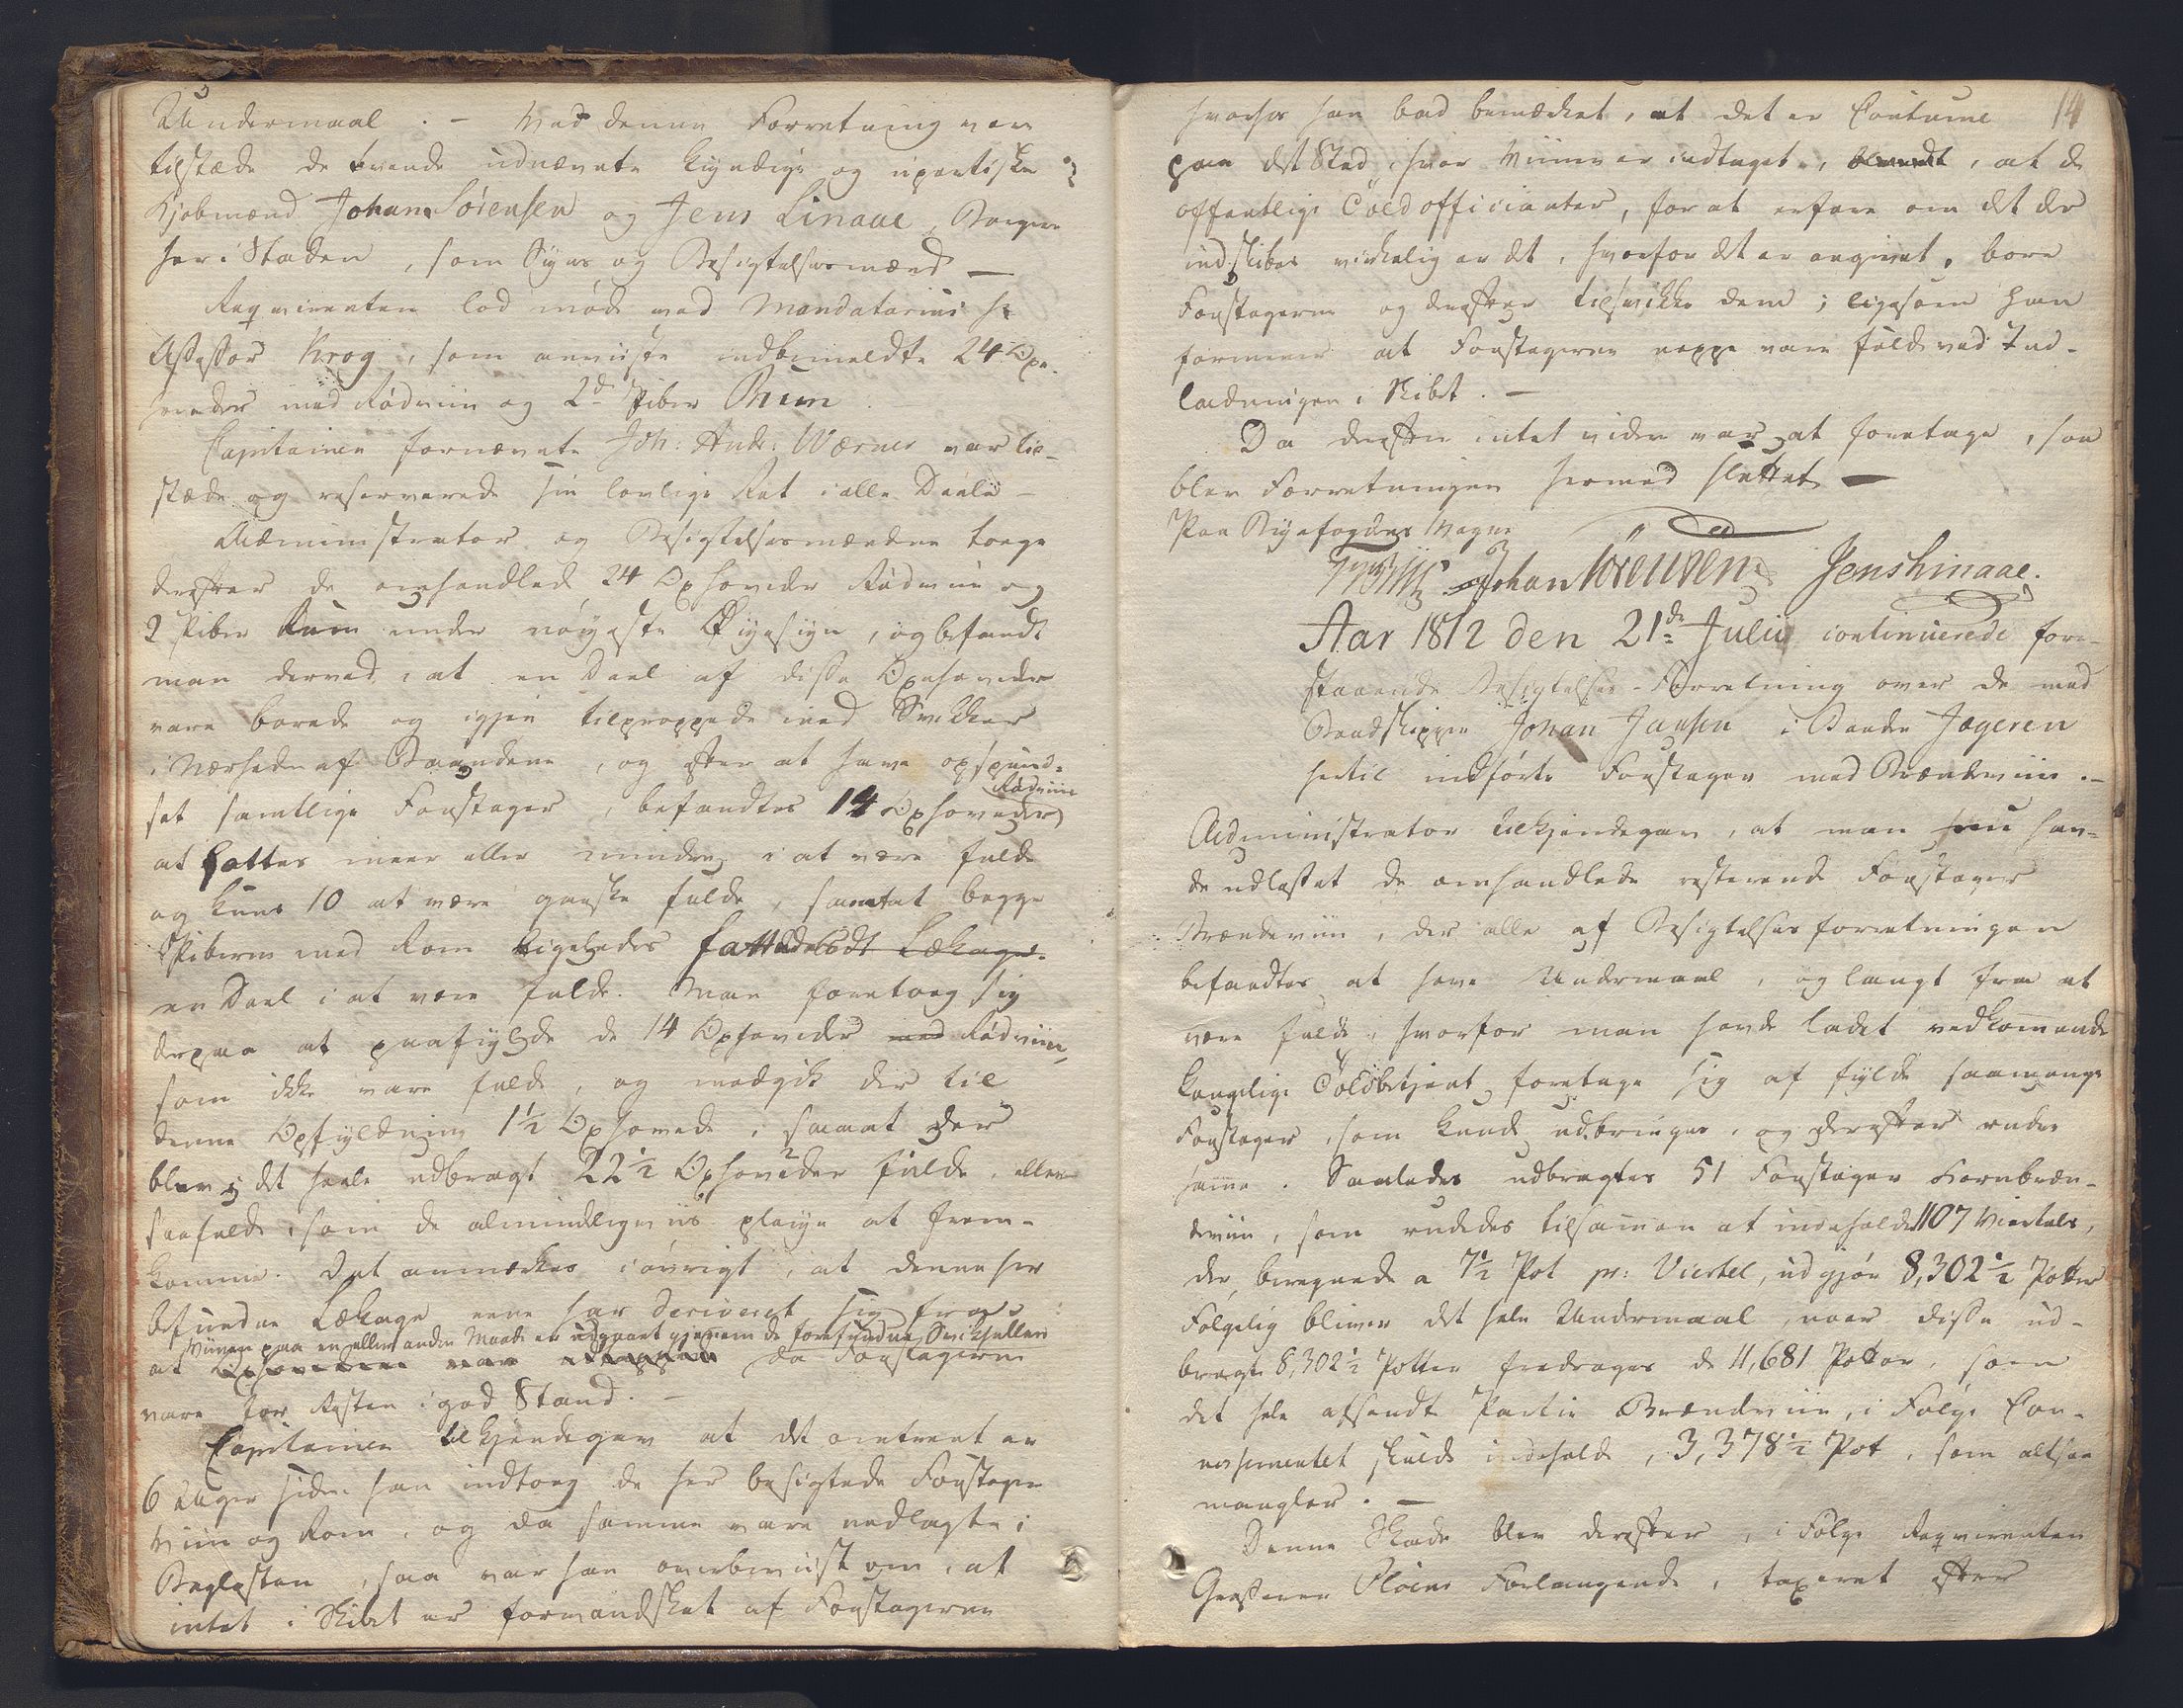 Undermaal . – Ved denne Forretning vare
tilstæde de tvende udnævnte kyndige og upartiske
Kjøbmænd Johan Sörensen og Jens Linaae, Borgere
her i Staden, som Syns og Besigtelsesmænd –
Reqvirenten lod møde ved Mandatarius Hr
Assessor Krog, som anviiste indbemeldte 24 Oxe-
hoveder med Rödviin og 2de Piber Rum.
Capitainen fornævnte Joh: Andr: Wærner var til-
stæde og reserverede sin lovlige Ret i alle Deele –
Administrator og Besigtelsesmændene toege
derefter de omhandlede 24 Oxhoveder Rödviin og
2 Piber Rum under nöyeste Öyesyn, og befandt
man derved, at en Deel af disse Oxehoveder
vare borede og igjen tilproppede med Svikker
i Nærheden af Baandene, og efter at have opspund-
set samtlige Foustager, befandtes 14 Oxhoveder Rödviin
at fattes meer eller mindre i at være fulde
og kuns 10 at være ganske fulde, samt at begge
Piberne med Rom ligeledes fattedes
en Deel i at være fulde. Man foretoeg sig
derpaa at paafylde de 14 Oxhoveder med Rödviin,
som ikke vare fulde, og medgik der til
denne Opfyldning 1½ Oxhovede, saa at der
blev i det heele udbragt 22½ Oxhoveder fulde, eller
saa fulde, som de almindeligviis pleije at frem-
komme. Det anmærkes iövrigt, at denne her
befundne Lækage eene har deriveret sig fra,
at Viinen paa en eller anden Maade er udgaaet gjennem de forefundne Svikhuller
da Foustagerne
vare for Resten i god Stand. –
Capitainen tilkjendegav at det omtrent er
6 Uger siden han indtoeg de her besigtede Foustager
Viin og Rom, og da samme vare nedlagte i
Baglasten, saa var han overbeviist om, at
intet i Skibet er formandsket af Foustagerne
14
hvorhos han bad bemærket, at det er Coutume
paa det Sted, hvor Vinene er indtaget, at de
offentlige Toldofficianter, for at erfare om det der
indskibes virkelig er det, hvorfor det er angivet, bore
Foustagerne og derefter tilsvikke dem; ligesom han
formener at Foustagerne neppe vare fulde ved Ind-
ladningen i Skibet. –
Da derefter intet videre var at foretage, saa
blev Forretningen hermed sluttet –
Paa Byefogdens Vegne
Johan Sörensen Jens Linaae.
Aar 1812 den 21de Julii continuerede fore-
staaende Besigtelses-Forretning over de med
Baadskipper Johan Jansen i Baaden Jægeren
hertil indførte Foustager med Brændeviin. –
Administrator tilkjendegav, at man hav-
de udlosset de omhandlede resterende Foustager
Brændeviin, der alle af Besigtelsesforretningen
befandtes at have Undermaal, og langt fra at
være fulde, hvorfor man havde ladet vedkommende
kongelige Toldbetjent foretage sig at fylde saamange
Foustager, som kunde udbringes, og derefter rudes
samme. Saaledes udbragtes 51 Foustager Kornbræn-
deviin, som rudedes tilsammen at indeholde 1107 Viertels,
der, beregnede a 7½ Pot pr: Viertel, udgjör 8,302½ Potter
Fölgelig bliver det hele Undermaal, naar disse ud-
bragte 8,302½ Potter fradrages de 11,681 Potter, som
det hele afsendte Partie Brændeviin, i Fölge Con-
nossementet skulde indeholde, 3,378½ Pot, som altsaa
mangler. –
Denne Skade blev derefter, i Fölge Reqvirenten
Grosserer Ploens Forlangende, taxeret efter